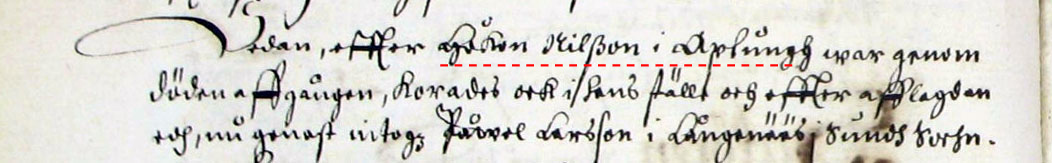 Sedan, effter Håkon Nilsson i Aplungh war genom
döden affgången, korades och i hans ställe och effter afflagdan
edh, nu genast intogz Påwel Larsson i Långenääs i Sundz Sochn.